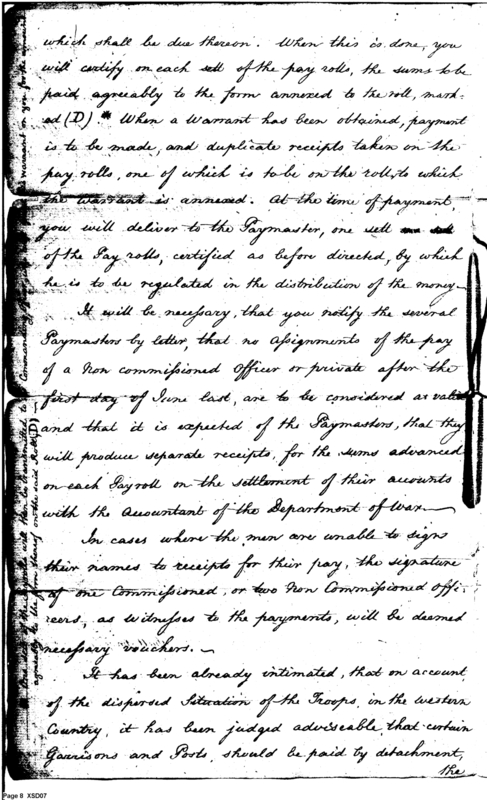 which shall be due thereon. When this is done, you
will certify on each sett of the pay rolls, the sums to be
paid agreeably to the form annexed to the roll, mark-
ed (D) * When a Warrant has been obtained, payment
is to be made, and duplicate receipts taken on the
pay rolls, one of which is to be on the roll, to which
the warrant is annexed. At the time of payment,
you will deliver to the Paymaster, one sett
of the Pay rolls, certified as before directed, by which
he is to be regulated in the distribution of the money—
It will be necessary, that you notify the several
Paymasters by letter, that no assignments of the pay
of a Non commissioned Officer or private after the
first day of June last, are to be considered as valid
and that it is expected of the Paymasters, that they
will produce separate receipts, for the sums advanced
on each Payroll on the settlement of their accounts
with the Accountant of the Department of War—
In cases where the men are unable to sign
their names to receipts for their pay, the signature
of one Commissioned, or two Non Commissioned offi-
cers, as witnesses to the payments, will be deemed
necessary vouchers. —
It has been already intimated, that on account
of the dispersed Situation of the Troops, in the western
Country, it has been judged adviseable that certain
Garrisons and Posts, should be paid by detachment,
the
will then be transmitted to the Commanding
agreeably to the form thereof on the said Roll (D) —
Page 8 XSD07